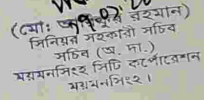 (মোঃ রহমান)
সিনিয়র সহকারী সচিব
সচিব (অ. দা.)
ময়মনসিংহ সিটি কর্পোরেশন
ময়মনসিংহ।